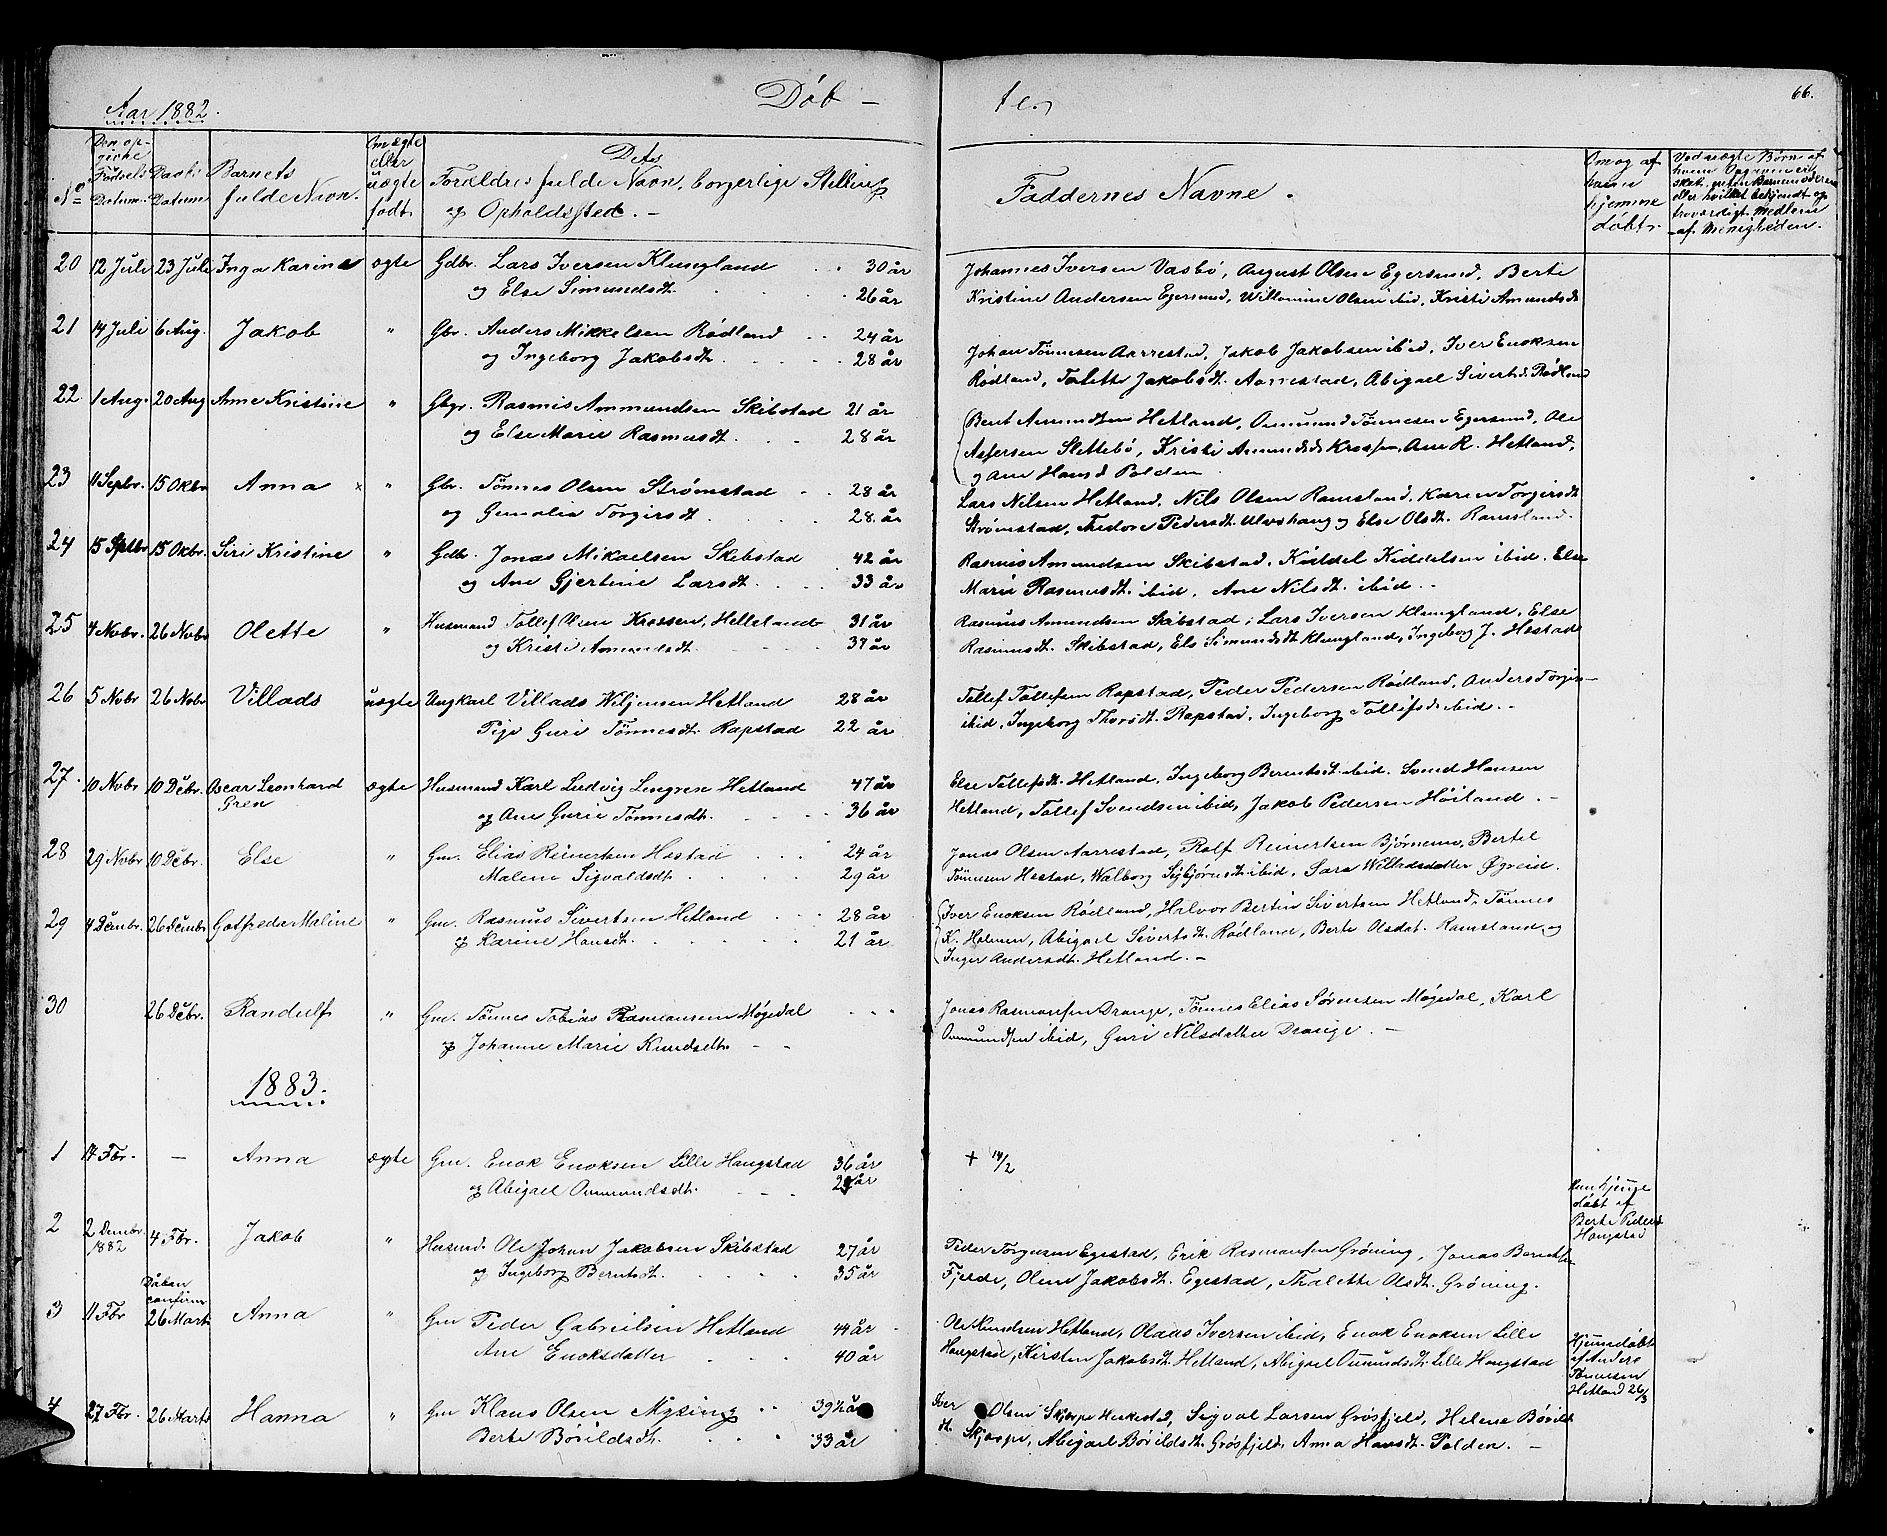 Aar 1882.
Döb – ten
66.
No
Den opgivne Födsels Datum.
Daabs Datum
Barnets fulde Navn.
Om ægte eller uægte født
Dets Forældres fulde Navn, borgerlige Stilling og Opholdssted. –
Faddernes Navne.
Om og af hvem hjemmedöbt.
Ved uægte Børn af hvem Opgivnen er skeet, enten Barnemoderen eller hvilket bekjendt og troværdigt Medlem af Menigheden.
20 12 Juli 23 Juli Inga Karine ægte Gdbr. Lars Iversen Klungland 30 år
og Else Simundsdt. 26 år
Johannes Iversen Vasbø, August Olsen Egersund, Berte
Kristine Andersen Egersund, Willomine Olsen ibid, Kristi Amundsdt
21 14 Juli 6 Aug. Jakob " Gbr. Anders Mikkelsen Rødland 24 år
og Ingeborg Jakobsdt. 28 år
Johan Tönnesen Aarrestad, Jakob Jakobsen ibid, Iver Enoksen
Rödland, Tolette Jakobsdt. Aarrestad, Abigael Sivertsd. Rödland
22 1 Aug. 20 Aug Anne Kristine " Gbgr. Rasmus Ammundsen Skibstad 21 år
og Else Marie Rasmusdt. 28 år
Berit Amundsen Hetland, Ommund Tönnesen Egersund, Ole
Slettebö, Kristi Amundsd. Krossen, Ane R. Hetland,
og Ane Hansd Polden
23 11 Sepbr. 15 Okbr Anna x " Gbr. Tönnes Olsen Strömstad 28 år
og Gunolea Torgirsdt. 28 år
Lars Nilsen Hetland, Nils Olsen Ramsland, Karen Torgirsdt
Strömstad, Thedore Pedersdt. Ulvshaug og Else Olsdt. Ramsland.
24 15 Septbr 15 Okbr. Siri Kristine " Gdbr. Jonas Mikaelsen Skibstad 42 år
og Ane Gjertine Larsdt. 33 år
Rasmus Amundsen Skibstad, Kiddel Kiddelsen ibid, Else
Marie Rasmusdt. ibid, Ane Nilsdt. ibid. –
25 4 Nobr. 26 Nobr Olette " Husmand Tollef Olsen Krossen, Helleland 31 år
og Kristi Amundsdt. 37 år
Rasmus Amundsen Skibstad, Lars Iversen Klungland, Else
Rasmusdt. Skibstad, Els Simundsdt Klungland, Ingeborg J. Hestad
26 5 Nobr 26 Nobr Villads uægte Ungkarl Villads Wiljensen Hetland 28 år
Pige Guri Tönnesdt. Rapstad 22 år
Tollef Tollefsen Rapstad, Peder Pedersen Rödland, Anders Torgirs–
ibid, Ingeborg Thorsdt. Rapstad, Ingeborg Tollefsd. ibid. –
27. 10 Nobr 10 Debr. Oscar Leonhard ægte Husmand Karl Ludvig Lengren Hetland 47 år
Gren og Ane Gurie Tönnesdt. 36 år
Else Tollefsdt. Hetland, Ingeborg Berentsdt. ibid. Svend Hansen
Hetland, Tollef Svendsen ibid, Jakob Pedersen Höiland. –
28 29 Nobr 10 Debr. Else " Gm. Elias Reinertsen Hestad 24 år
Malene Sigvaldsdt. 29 år
Jonas Olsen Aarrestad, Rolf Reinertsen Björnemo, Bertel
Tönnesen Hestad, Walborg Sigbjörnsdt ibid, Sara Willadsdatter Øgreid.
29 4 Decmbr. 26 Decmbr Gotfreda Maline " Gm. Rasmus Sivertsen Hetland 28 år
og Karine Hansdt. 21 år
Iver Enoksen Rödland, Halvor Bertin Sivertsen Hetland, Tönnes
K. Holmen, Abigael Sivertsdt. Rödland, Berte Olsdat. Ramsland og
Inger Andersdt. Hetland. –
30 26 Debr. Randulf " Gm. Tönnes Tobias Rasmussen Møgedal
og Johanne Marie Knudsdt. – –
Jonas Rasmussen Drange, Tönnes Elias Sörensen Møgedal, Karl
Ommundsen ibid, Guri Nilsdatter Drange. –
1883.
1 14 Fbr. – Anna ægte Gm. Enok Enoksen Lille Haugstad 36 år
og Abigael Ommundsdt. 29 år
+ 14/2
2 2 Decmbr. 1882 4 Fbr. Jakob " Husmd. Ole Johan Jakobsen Skibstad 27 år
og Ingeborg Berntsdt. 35 år
Peder Torgersen Egestad, Erik Rasmussen Gröning, Jonas Berentsen
Fjelde, Oline Jakobsdt. Egestad, Thalette Olsdt. Gröning.
Hun hjemmedöbt af Berte Pedersd Haugstad
3 11 Fbr Daaben confirm 26 Marts Anna " Gm Peder Gabrielsen Hetland 44 år
Ane Enoksdatter 40 år
Ole Knudsen Hetland, Olaus Iversen ibid, Enok Enoksen Lille
Haugstad, Kirsten Jakobsdt. Hetland, Abigael Ommundsdt. Lille Haugstad
Hjemmedöbt af Anders Tönnesen Hetland 26/3
4 27 Fbr. 26 Marts Hanna " Gm Klaus Olsen Mysing 39½ år
Berte Bövildsdt. 33 år
Iver Olsen Skjerpe Heskestad, Sigval Larsen Grösfjeld, Helene Bövilds
dt. Skjerpe, Abigael Bövildsdt. Grösfjeld, Anna Hansdt. Polden. –